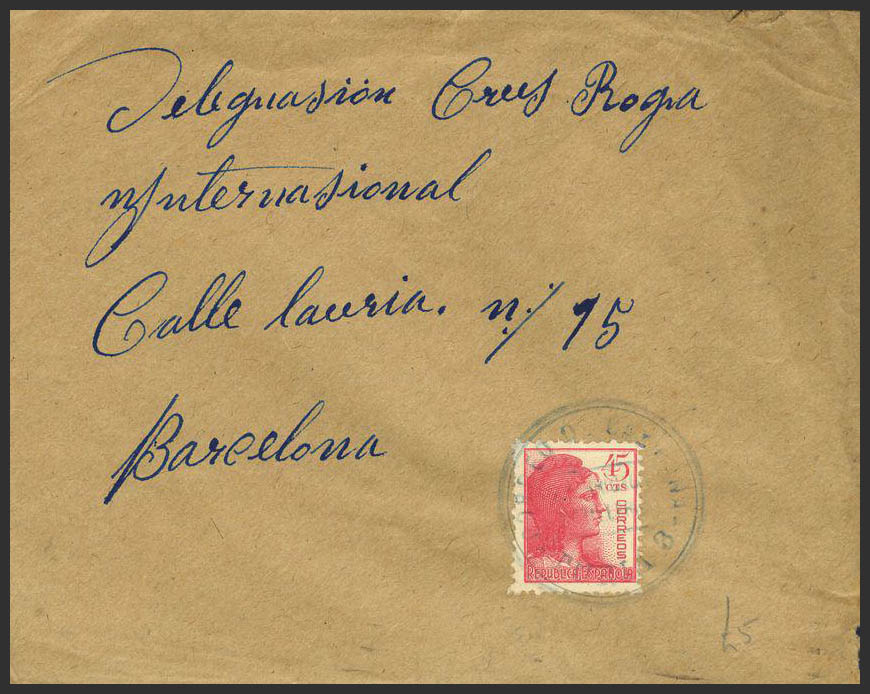 Deleguasiön Crus Rogra
Internasional
Calle lauria. n./ 15
Barcelona
45
CTS
CORREOS
REPUBLICA ESPAÑOLA